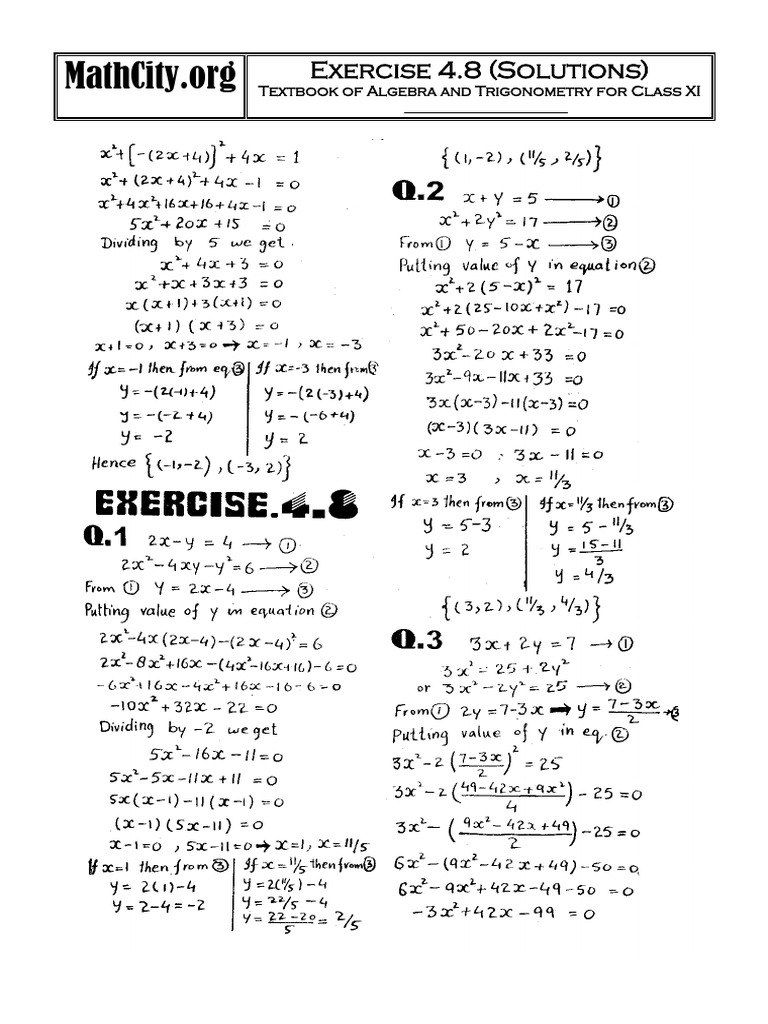 MathCity.org
Exercise 4.8 (Solutions)
Textbook of Algebra and Trigonometry for Class XI
x²+[-(2x+4)]²+4x = 1
x²+(2x+4)²+4x-1 = 0
x²+4x²+16x+16+4x-1 = 0
5x²+20x+15 = 0
Dividing by 5 we get.
x²+4x+3 = 0
x²+x+3x+3 = 0
x(x+1)+3(x+1) = 0
(x+1)(x+3) = 0
x+1=0, x+3=0 → x=-1, x=-3
If x=-1 then from eq.③ | If x=-3 then from ③
y=-(2(-1)+4) | y=-(2(-3)+4)
y=-(-2+4) | y=-(-6+4)
y=-2 | y=2
Hence {(-1,-2),(-3,2)}
EXERCISE.4.8
Q.1 2x-y = 4 → ①
2x²-4xy-y²=6 → ②
From ① y = 2x-4 → ③
Putting value of y in equation ②
2x²-4x(2x-4)-(2x-4)²=6
2x²-8x²+16x-(4x²-16x+16)-6=0
-6x²+16x-4x²+16x-16-6=0
-10x²+32x-22=0
Dividing by -2 we get
5x²-16x-11=0
5x²-5x-11x+11=0
5x(x-1)-11(x-1)=0
(x-1)(5x-11)=0
x-1=0, 5x-11=0 → x=1, x=11/5
If x=1 then from ③ | If x=11/5 then from ③
y=2(1)-4 | y=2(11/5)-4
y=2-4=-2 | y=22/5-4
y=22-20/5=2/5
{(1,-2),(11/5,2/5)}
Q.2 x+y=5 → ①
x²+2y²=17 → ②
From ① y=5-x → ③
Putting value of y in equation ②
x²+2(5-x)²=17
x²+2(25-10x+x²)-17=0
x²+50-20x+2x²-17=0
3x²-20x+33=0
3x²-9x-11x+33=0
3x(x-3)-11(x-3)=0
(x-3)(3x-11)=0
x-3=0, 3x-11=0
x=3, x=11/3
If x=3 then from ③ | If x=11/3 then from ③
y=5-3 | y=5-11/3
y=2 | y=15-11/3
y=4/3
{(3,2),(11/3,4/3)}
Q.3 3x+2y=7 → ①
3x²=25+2y²
or 3x²-2y²=25 → ②
From ① 2y=7-3x → y=7-3x/2 → ③
Putting value of y in eq.②
3x²-2(7-3x/2)²=25
3x²-2(49-42x+9x²/4)-25=0
3x²-(9x²-42x+49/2)-25=0
6x²-(9x²-42x+49)-50=0
6x²-9x²+42x-49-50=0
-3x²+42x-99=0